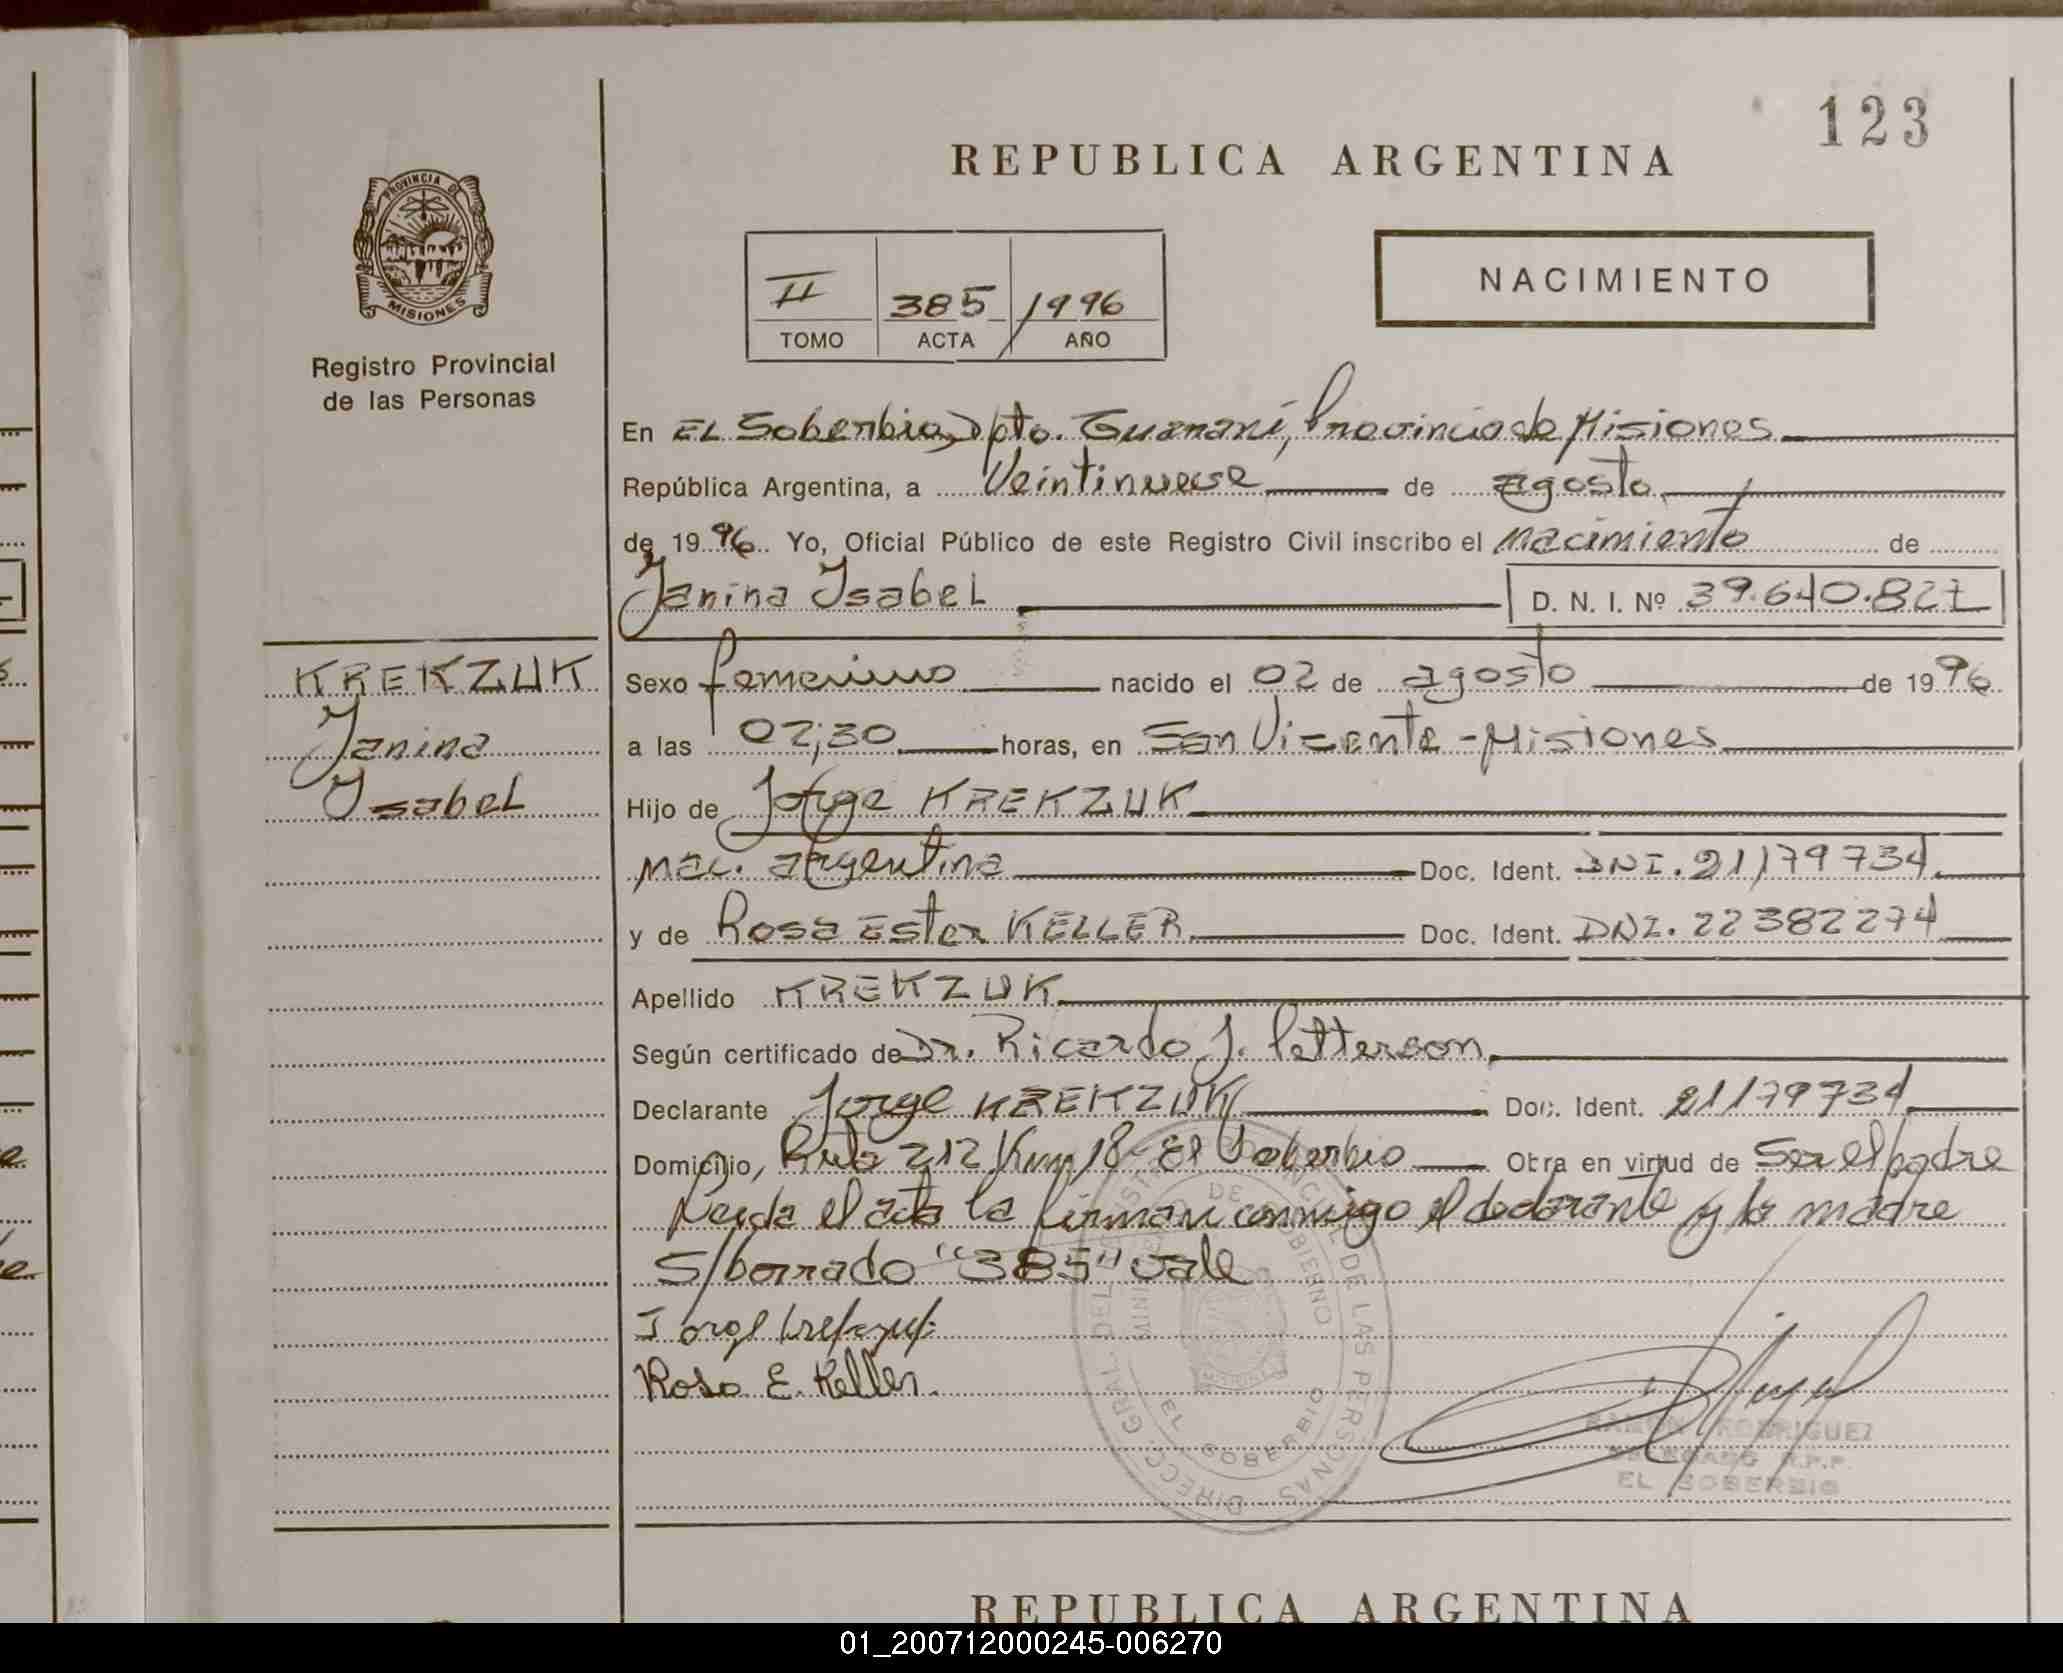 123
REPUBLICA ARGENTINA
PROVINCIA DE
MISIONES
Registro Provincial
de las Personas
II 385 / 1996
TOMO ACTA AÑO
NACIMIENTO
En EL Soberbio, Dpto. Guaraní, Provincia de Misiones
República Argentina, a Veintinueve de agosto
de 1996. Yo, Oficial Público de este Registro Civil inscribo el nacimiento de
Janina Isabel D. N. I. Nº 39.640.827
KREKZUK
Janina
Isabel
Sexo femenino nacido el 02 de agosto de 1996
a las 02;30 horas, en San Vicente - Misiones
Hijo de Jorge KREKZUK
nac. argentina Doc. Ident. DNI. 21179734
y de Rosa Ester KELLER Doc. Ident. DNI. 22382274
Apellido KREKZUK
Según certificado de Dr. Ricardo J. Petterson
Declarante Jorge KREKZUK Doc. Ident. 21179734
Domicilio, Ruta 212 Km 18 - El Soberbio Obra en virtud de Ser el padre
Leida el acta la firman conmigo el declarante y la madre
S/borrado "385" vale
Jorge Krekzuk
Rosa E. Keller.
DIRECC. GRAL. DEL REGISTRO PROVINCIAL DE LAS PERSONAS
MINISTERIO DE GOBIERNO
MISIONES
EL SOBERBIO
RAMON RODRIGUEZ
DELEGADO R.P.P.
EL SOBERBIO
REPUBLICA ARGENTINA
01_200712000245-006270